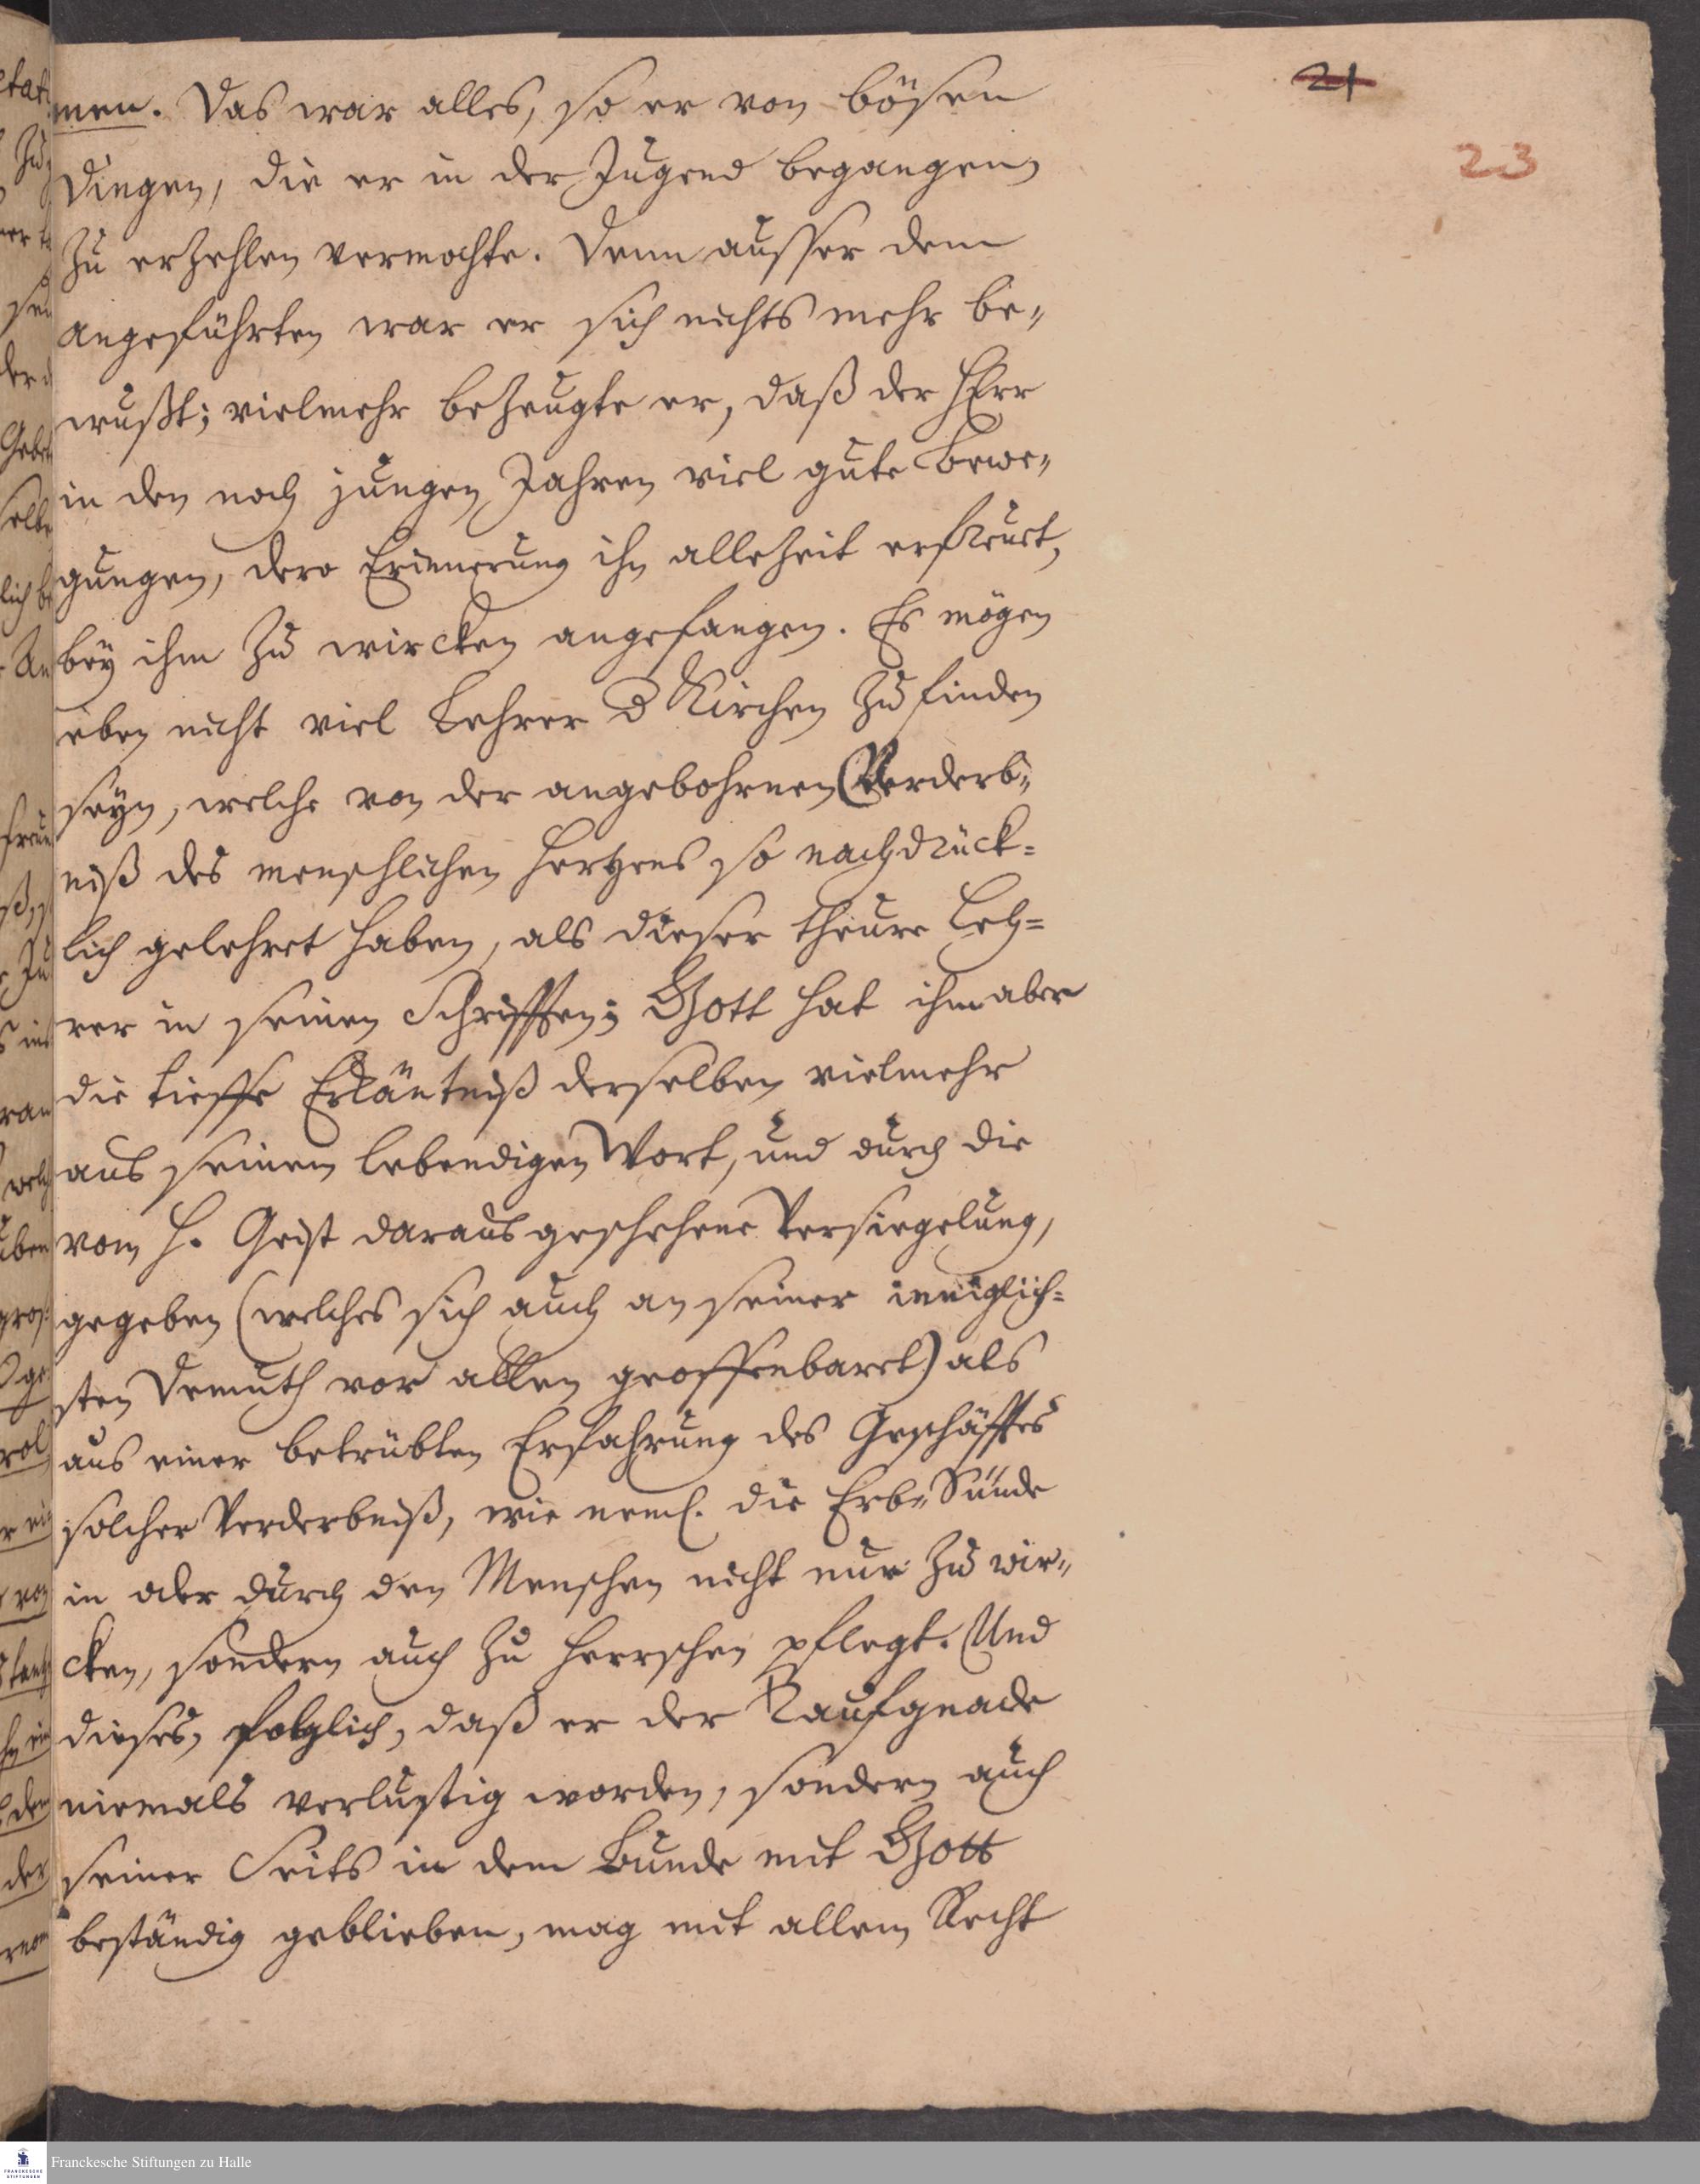 21
23
men. Das war alles, so er von bösen
Dingen, die er in der Jugend begangen
zu erzehlen vermochte. Denn ausser dem
angeführten war er sich nichts mehr be-
wußt; vielmehr bezeugte er, daß der HErr
in den noch jungen Jahren viel gute Bewe-
gungen, dero Erinnerung ihn allezeit erfreuet,
bey ihm zu wircken angefangen. Es mögen
eben nicht viel Lehrer d Kirchen zu finden
seyn, welche von der angebohrnen Verderb-
niß des menschlichen Hertzens so nachdrück-
lich gelehret haben, als dieser theure Leh-
rer in seinen Schrifften; Gott hat ihm aber
die tieffe Erkäntniß derselben vielmehr
aus seinem lebendigen Wort, und durch die
vom H. Geist daraus geschehene Versiegelung,
gegeben (welches sich auch an seiner inniglich-
sten Demuth vor allen geoffenbaret) als
aus einer betrübten Erfahrung des Geschäfftes
solcher Verderbniß, wie neml. die Erb-Sünde
in oder durch den Menschen nicht nur zu wir-
cken, sondern auch zu herrschen pflegt. Und
dieses, folglich, daß er der Taufgnade
niemals verlustig worden, sondern auch
seiner Seits in dem Bunde mit Gott
beständig geblieben, mag mit allem Recht
Franckesche Stiftungen zu Halle